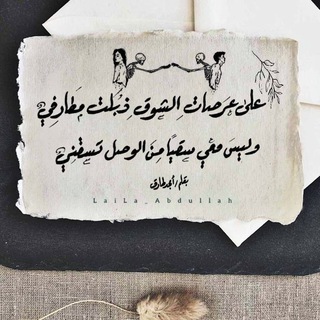 على عرصات الشوق ذبلت مطارفي
وليس معي سقيا من الوصل تسقني
بقلم/أمجد طارق
LaiLa_Abdullah